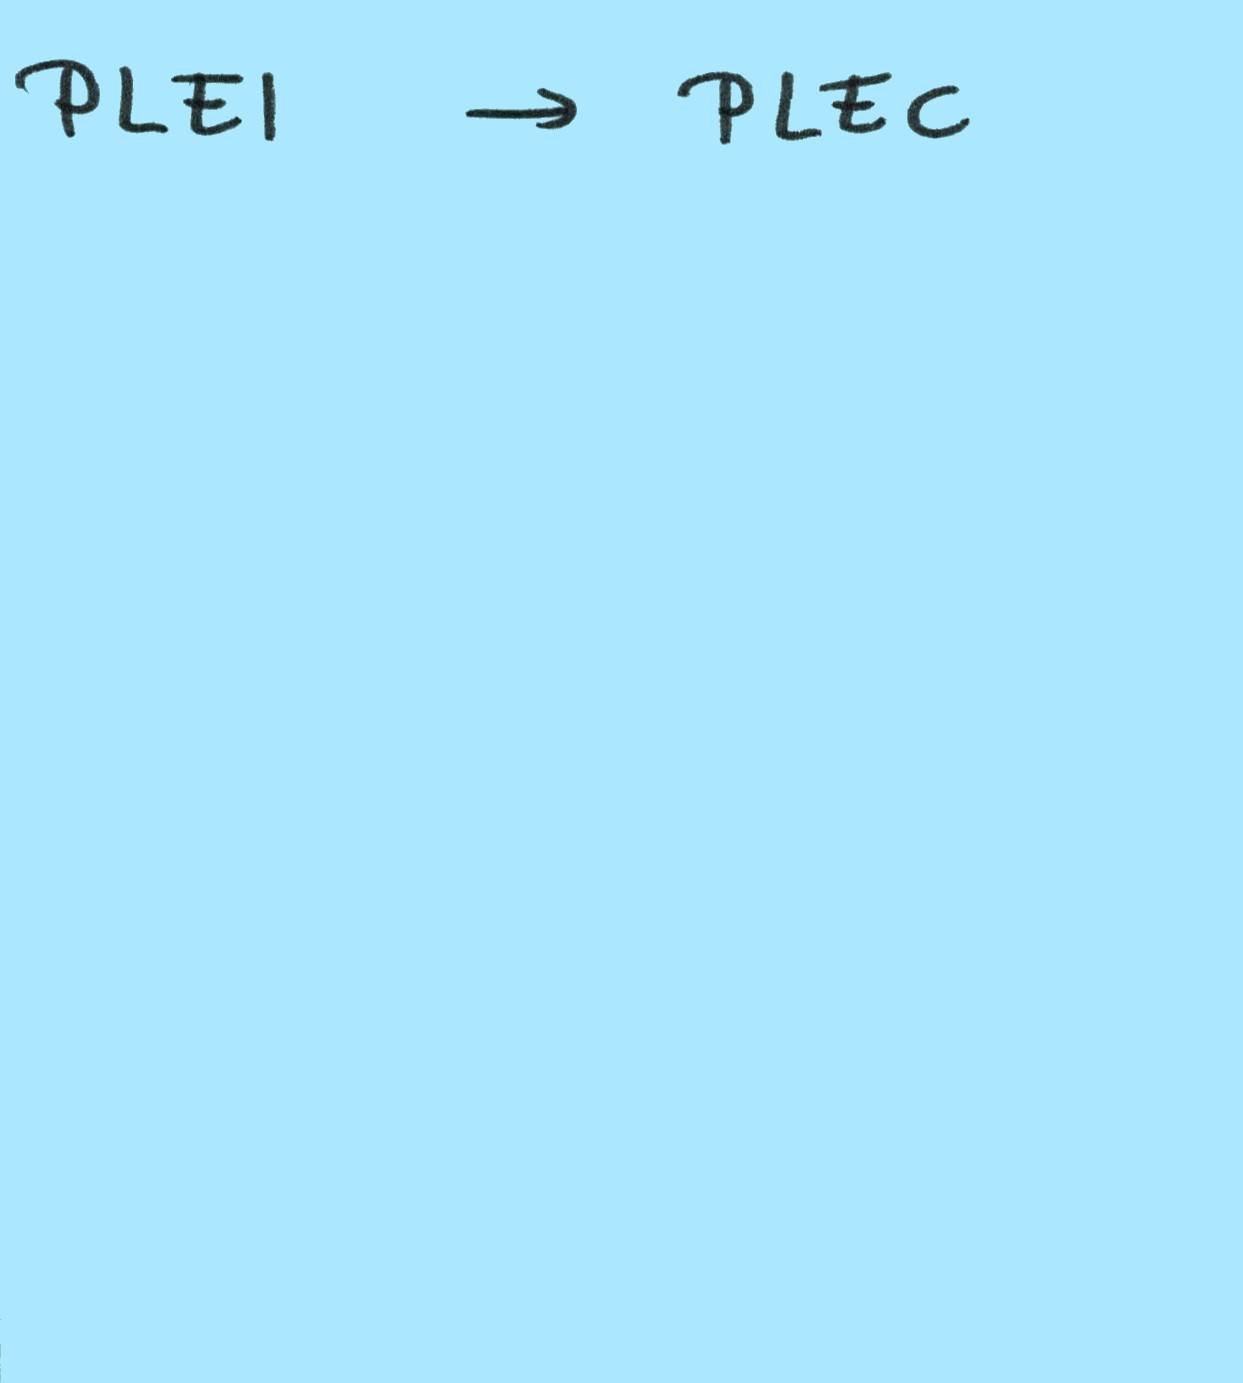 PLEI → PLEC